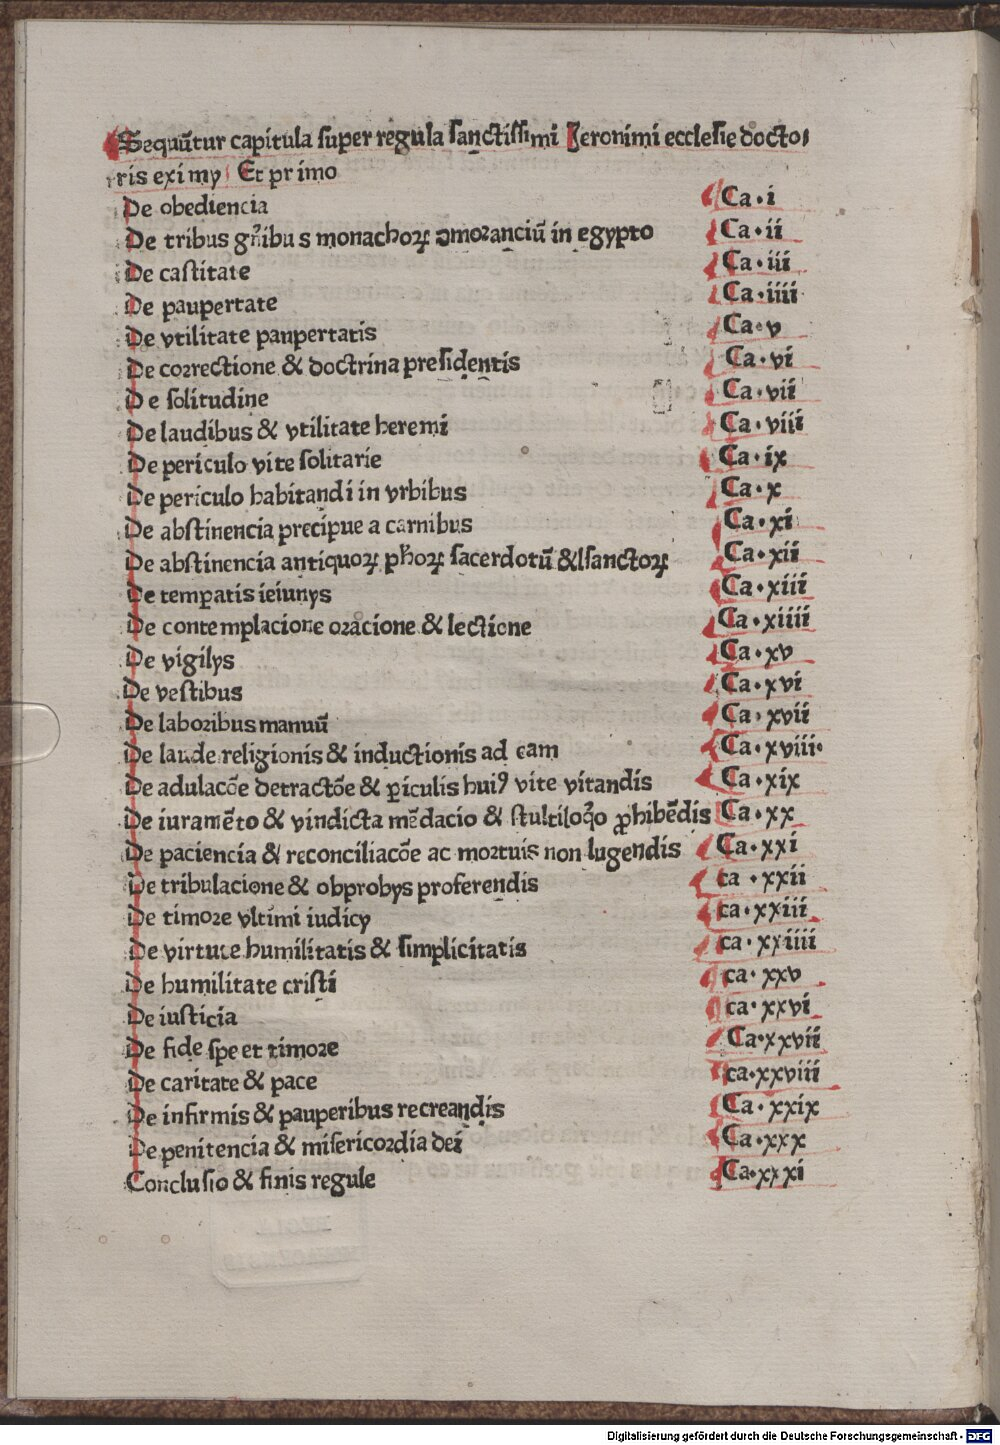 Sequūtur capitula super regula sanctissimi Jeronimi ecclesie docto⸗
ris eximy Et primo
De obediencia Ca·i
De tribus gn̄ibus monachoꝝ ꝯmoranciū in egypto Ca·ii
De castitate Ca·iii
De paupertate Ca·iiii
De vtilitate paupertatis Ca·v
De correctione & doctrina presidentis Ca·vi
De solitudine Ca·vii
De laudibus & vtilitate heremi Ca·viii
De periculo vite solitarie Ca·ix
De periculo habitandi in vrbibus Ca·x
De abstinencia precipue a carnibus Ca·xi
De abstinencia antiquoꝝ ph̄oꝝ sacerdotū &lsanctoꝝ Ca·xii
De temꝑatis ieiunys Ca·xiii
De contemplacione oracione & lectione Ca·xiiii
De vigilys Ca·xv
De vestibus Ca·xvi
De laboribus manuū Ca·xvii
De laude religionis & inductionis ad eam Ca·xviii·
De adulacōe detractōe & ꝑiculis huiꝰ vite vitandis Ca·xix
De iuramēto & vindicta mēdacio & stultiloq̄o ꝓhibēdis Ca·xx
De paciencia & reconciliacōe ac mortuis non lugendis Ca·xxi
De tribulacione & obprobys proferendis ca·xxii
De timore vltimi iudicy ca·xxiii
De virtute humilitatis & simplicitatis ca·xxiiii
De humilitate cristi ca·xxv
De iusticia ca·xxvi
De fide spe et timore Ca·xxvii
De caritate & pace ca·xxviii
De infirmis & pauperibus recreandis Ca·xxix
De penitencia & misericordia dei Ca·xxx
Conclusio & finis regule Ca·xxxi
Digitalisierung gefördert durch die Deutsche Forschungsgemeinschaft - DFG